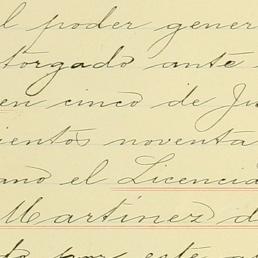 l poder gener
torgado ante
en cinco de Ju
ientos noventa
ano el Licencia
Martinez d
do por este a